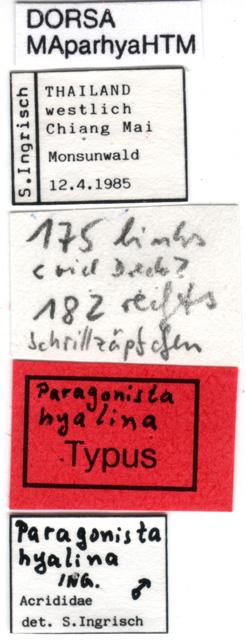 DORSA
MAparhyaHTM
S.Ingrisch
THAILAND
westlich
Chiang Mai
Monsunwald
12.4.1985
175 links
182 rechts
Schrillzäpfchen
Paragonista
hyalina
Typus
Paragonista
hyalina
ING. ♂
Acrididae
det. S.Ingrisch